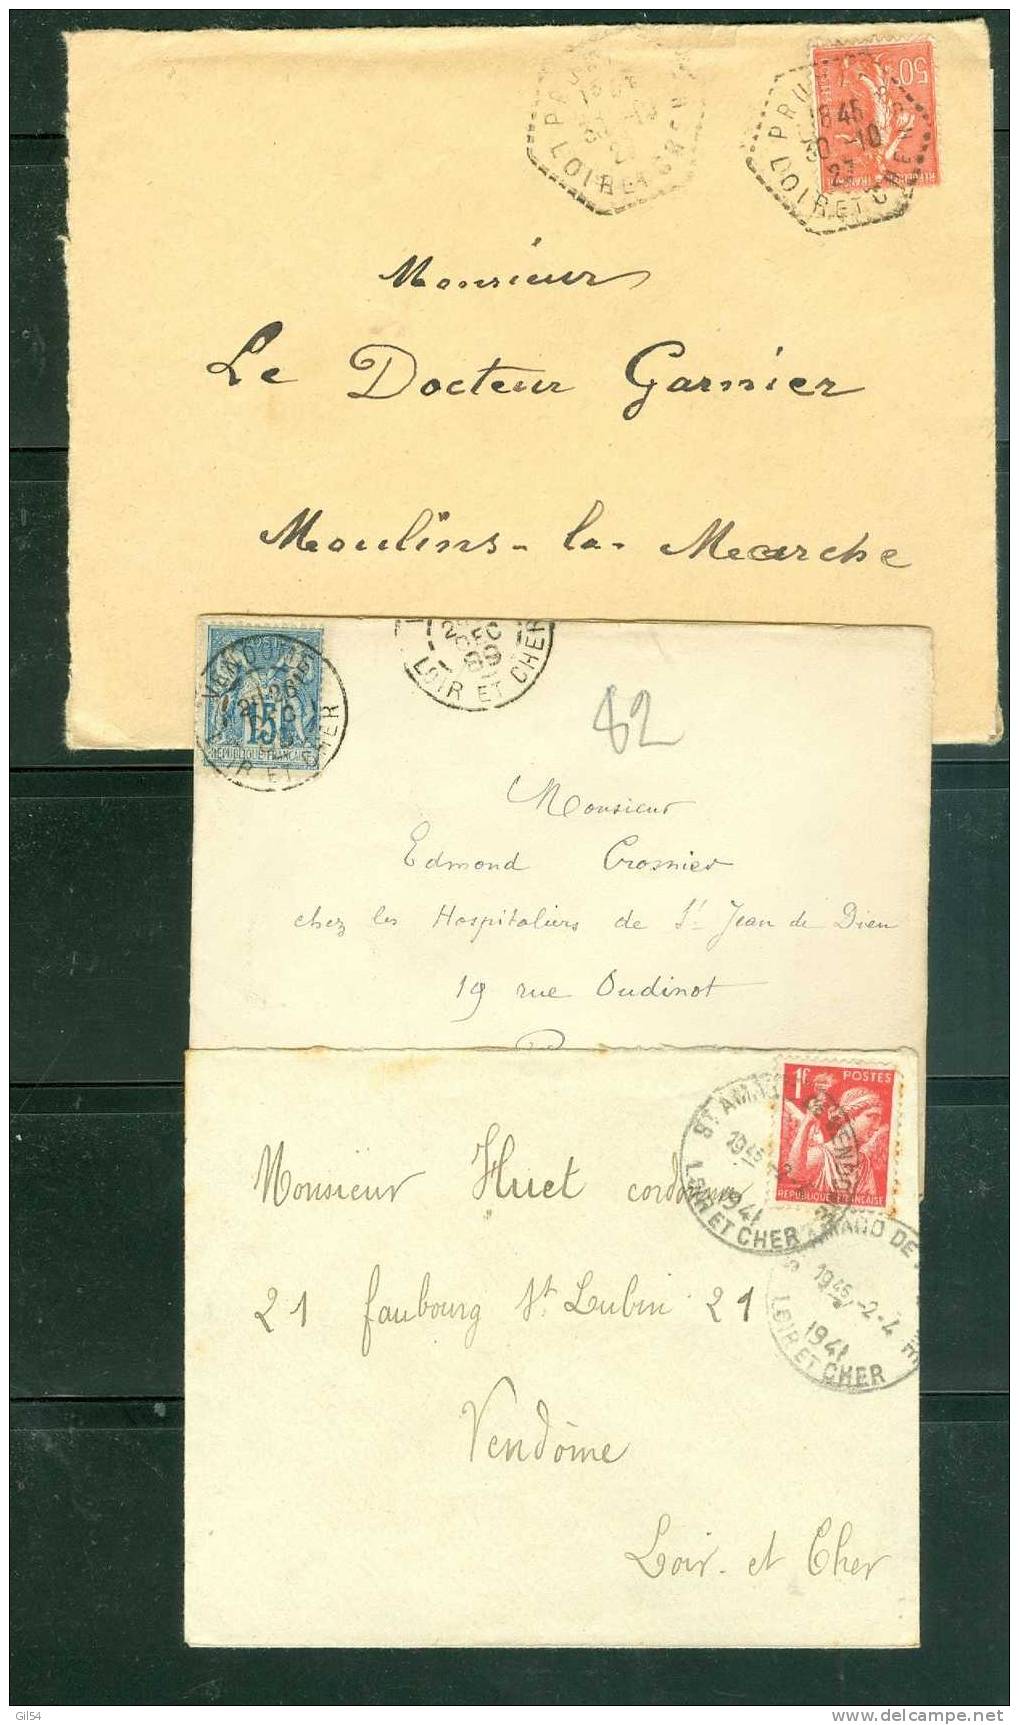 50c
18 45
LOIR ET CHER
LOIR ET CHER
Monsieur
Le Docteur Garnier
Moulins-la-Marche
VENDOME
15
REPUBLIQUE FRANCAISE
LOIR ET CHER
LOIR ET CHER
82
Monsieur
Edmond Crosnier
chez les Hospitaliers de St Jean de Dieu
19 rue Oudinot
1F POSTES
REPUBLIQUE FRANÇAISE
1941
LOIR ET CHER
Monsieur Huet cordonnier
21 faubourg St Lubin 21
AMAND DE
1945 -2-4
1941
LOIR ET CHER
Vendôme
Loir-et Cher
Gil54
www.delcampe.net